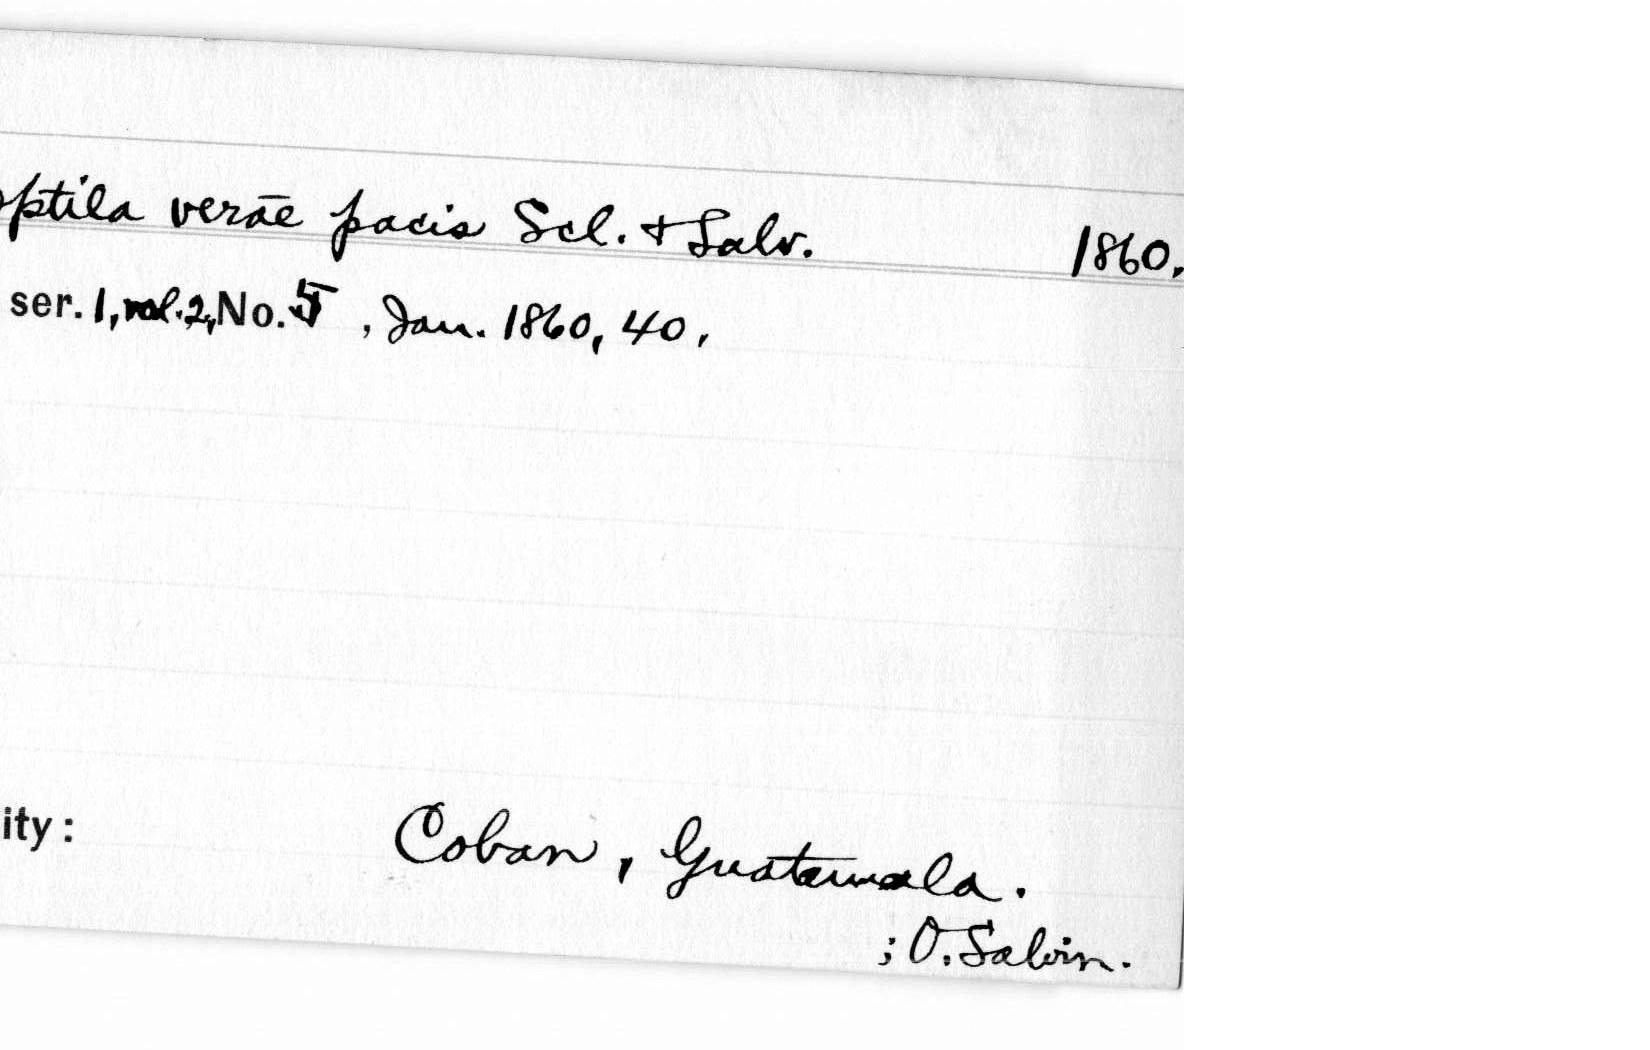 optila verae pacis Scl. + Salv. 1860.
ser. 1, vol. 2, No. 5, Jan. 1860, 40.
ity:
Coban, Guatemala.
; O. Salvin.